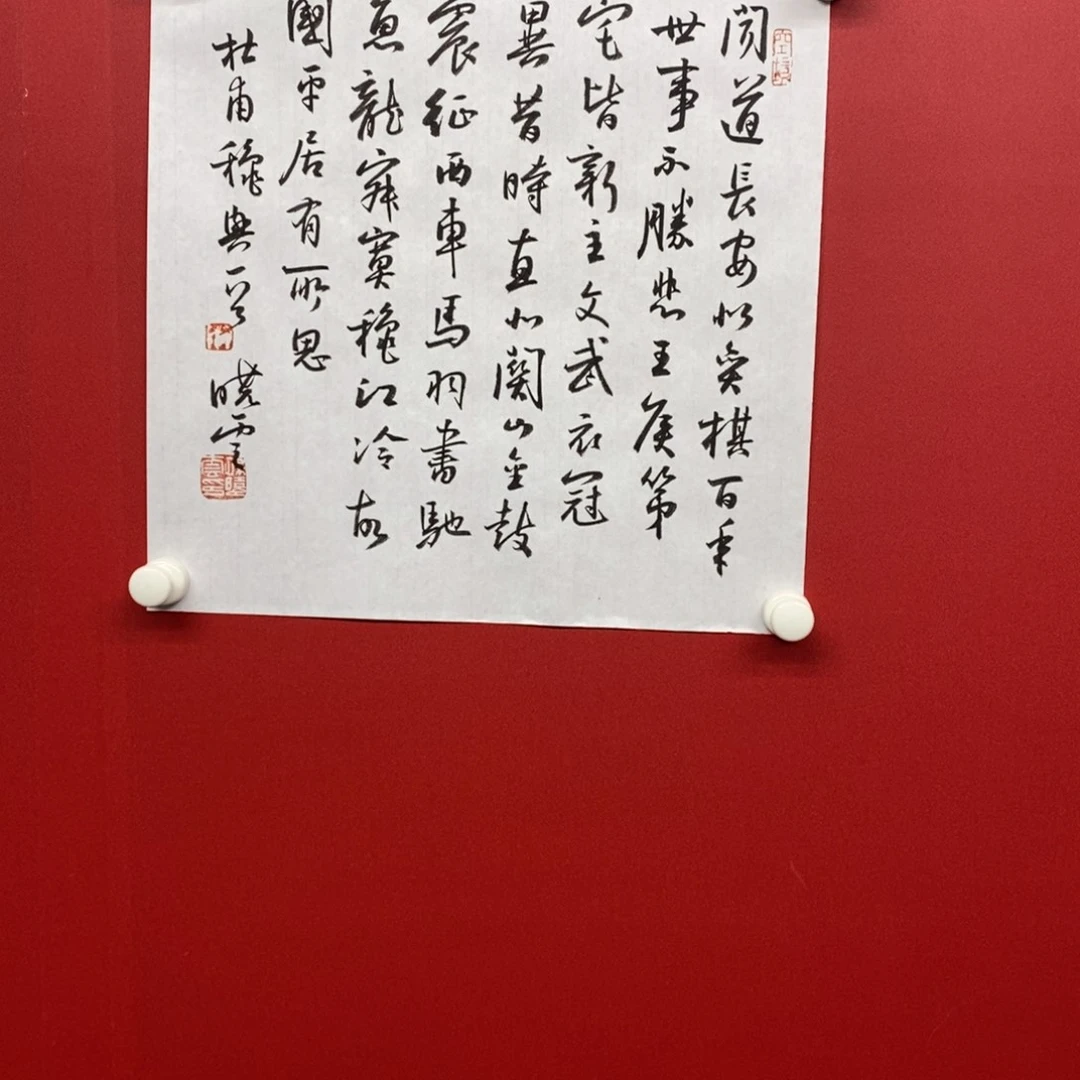 闻道長安似奕棋百年
世事不勝悲王侯第
宅皆新主文武衣冠
異昔時直北關山金鼓
震征西車馬羽書馳
魚龍寂寞秋江冷故
國平居有所思
杜甫秋興一首
曉雲